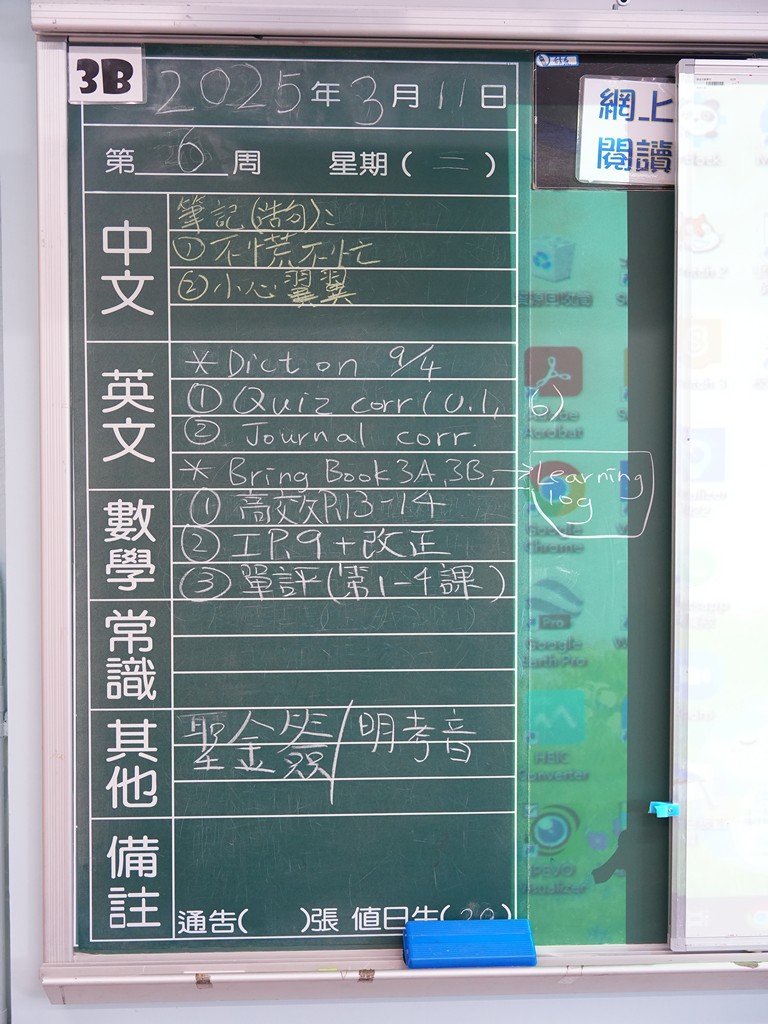 3B
2025年3月11日
第6周 星期(二)
中文
筆記(造句):
①不慌不忙
②小心翼翼
英文
* Dict on 9/4
① Quiz corr (U.1, 6)
② Journal corr.
* Bring Book 3A, 3B, → Learning log
數學
① 高效P.13-14
② IP.9+改正
③ 單評(第1-4課)
常識
其他
聖金簽/明考音
備註
通告( )張 值日生(20)
網上
閱讀
Adobe
Acrobat
Google
Chrome
Google
Earth Pro
HEIC
Converter